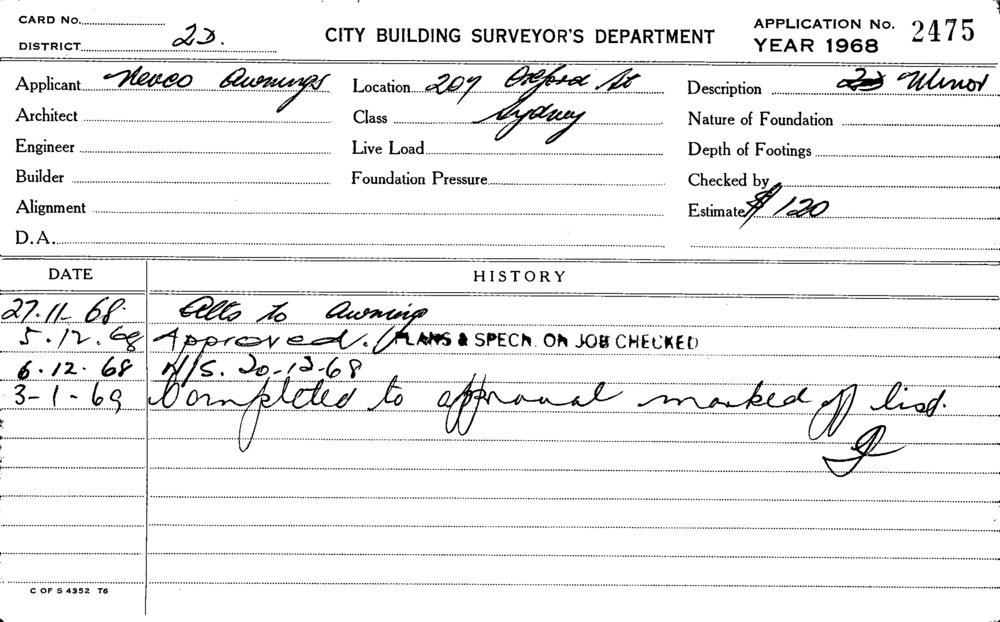 CARD No.
DISTRICT 2D.
CITY BUILDING SURVEYOR'S DEPARTMENT
APPLICATION No. 2475
YEAR 1968
Applicant Nevco Awnings Location 209 Oxford St Description Minor
Architect Class Sydney Nature of Foundation
Engineer Live Load Depth of Footings
Builder Foundation Pressure Checked by
Alignment Estimate $120
D.A.
DATE HISTORY
27.11.68. Alts to awning
5.12.68 Approved. PLANS & SPECN. ON JOB CHECKED
6.12.68 N/S. 20-12-68
3-1-69 Completed to approval marked off list.
C OF S 4352 T6